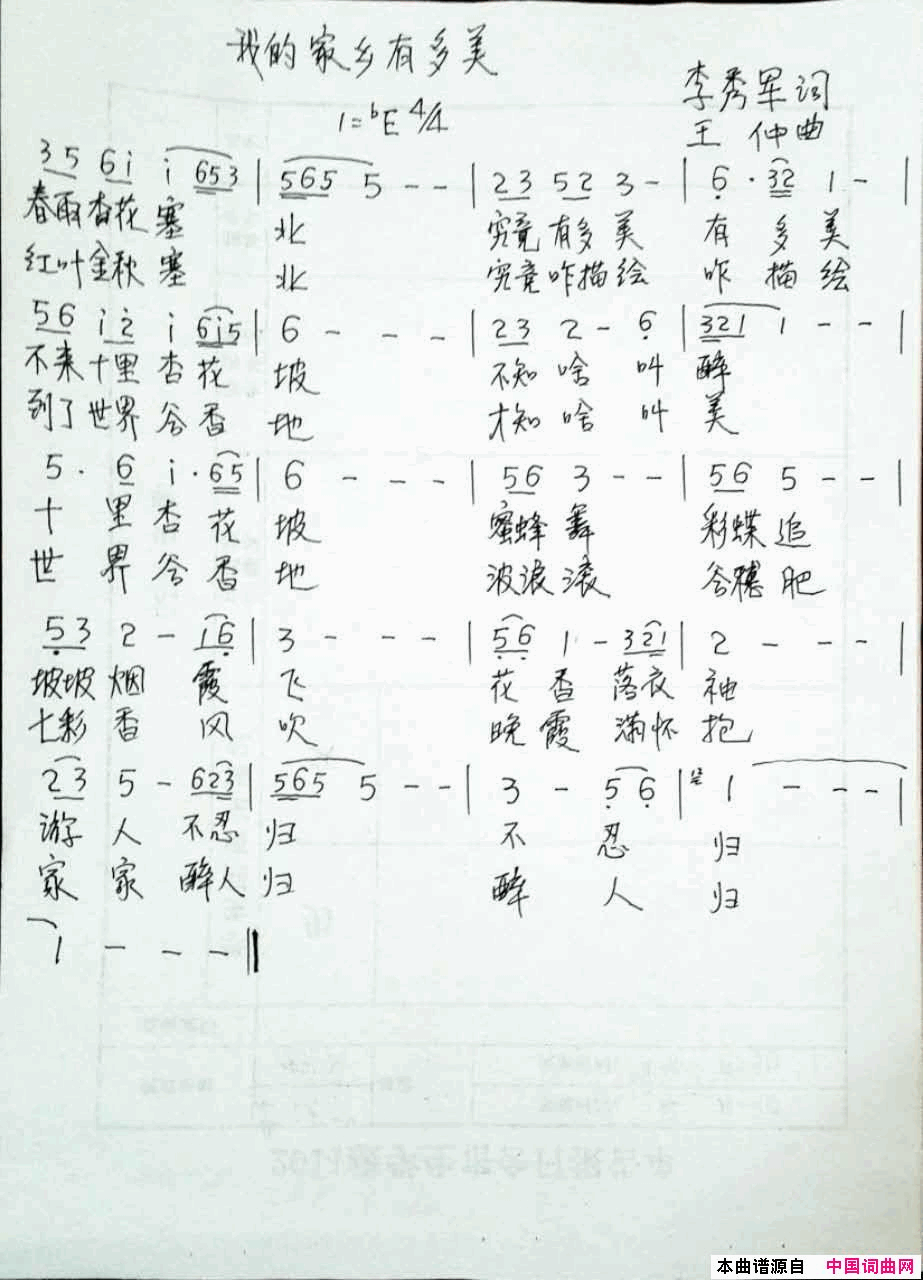 我的家乡有多美
李秀军词
1=ᵇE 4/4
王 仲曲
3 5 6 i i 653 | 565 5 - - | 23 52 3 - | 6 · 32 1 - |
春雨杏花塞 北 究竟有多美 有多美
红叶金秋塞 北 究竟咋描绘 咋描绘
56 i2 i 6i5 | 6 - - - | 23 2 - 6 | 321 1 - - |
不来十里杏花 坡 不知啥叫 醉
到了世界谷香 地 才知啥叫 美
5 · 6 i · 65 | 6 - - - | 56 3 - - | 56 5 - - |
十里杏花 坡 蜜蜂舞 彩蝶追
世界谷香 地 波浪滚 谷穗肥
53 2 - 16 | 3 - - - | 56 1 - 321 | 2 - - - |
坡坡烟霞 飞 花香落衣 袖
七彩香风 吹 晚霞满怀 抱
23 5 - 623 | 565 5 - - | 3 - 5 6 | 1 - - - |
游人不忍 归 不忍 归
家家醉人 归 醉人 归
1 - - - ‖
本曲谱源自 中国词曲网